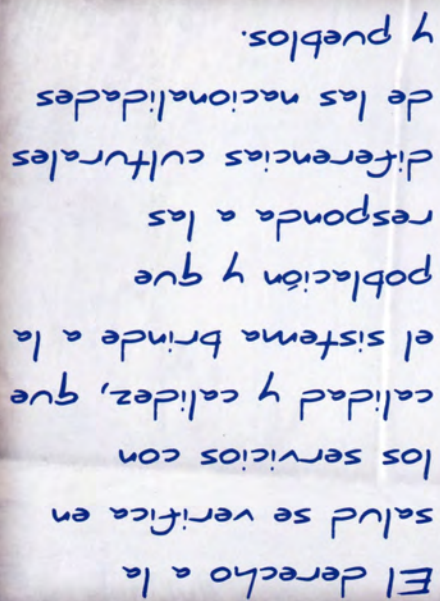 El derecho a la
salud se verifica en
los servicios con
calidad y calidez, que
el sistema brinde a la
población y que
responda a las
diferencias culturales
de las nacionalidades
y pueblos.